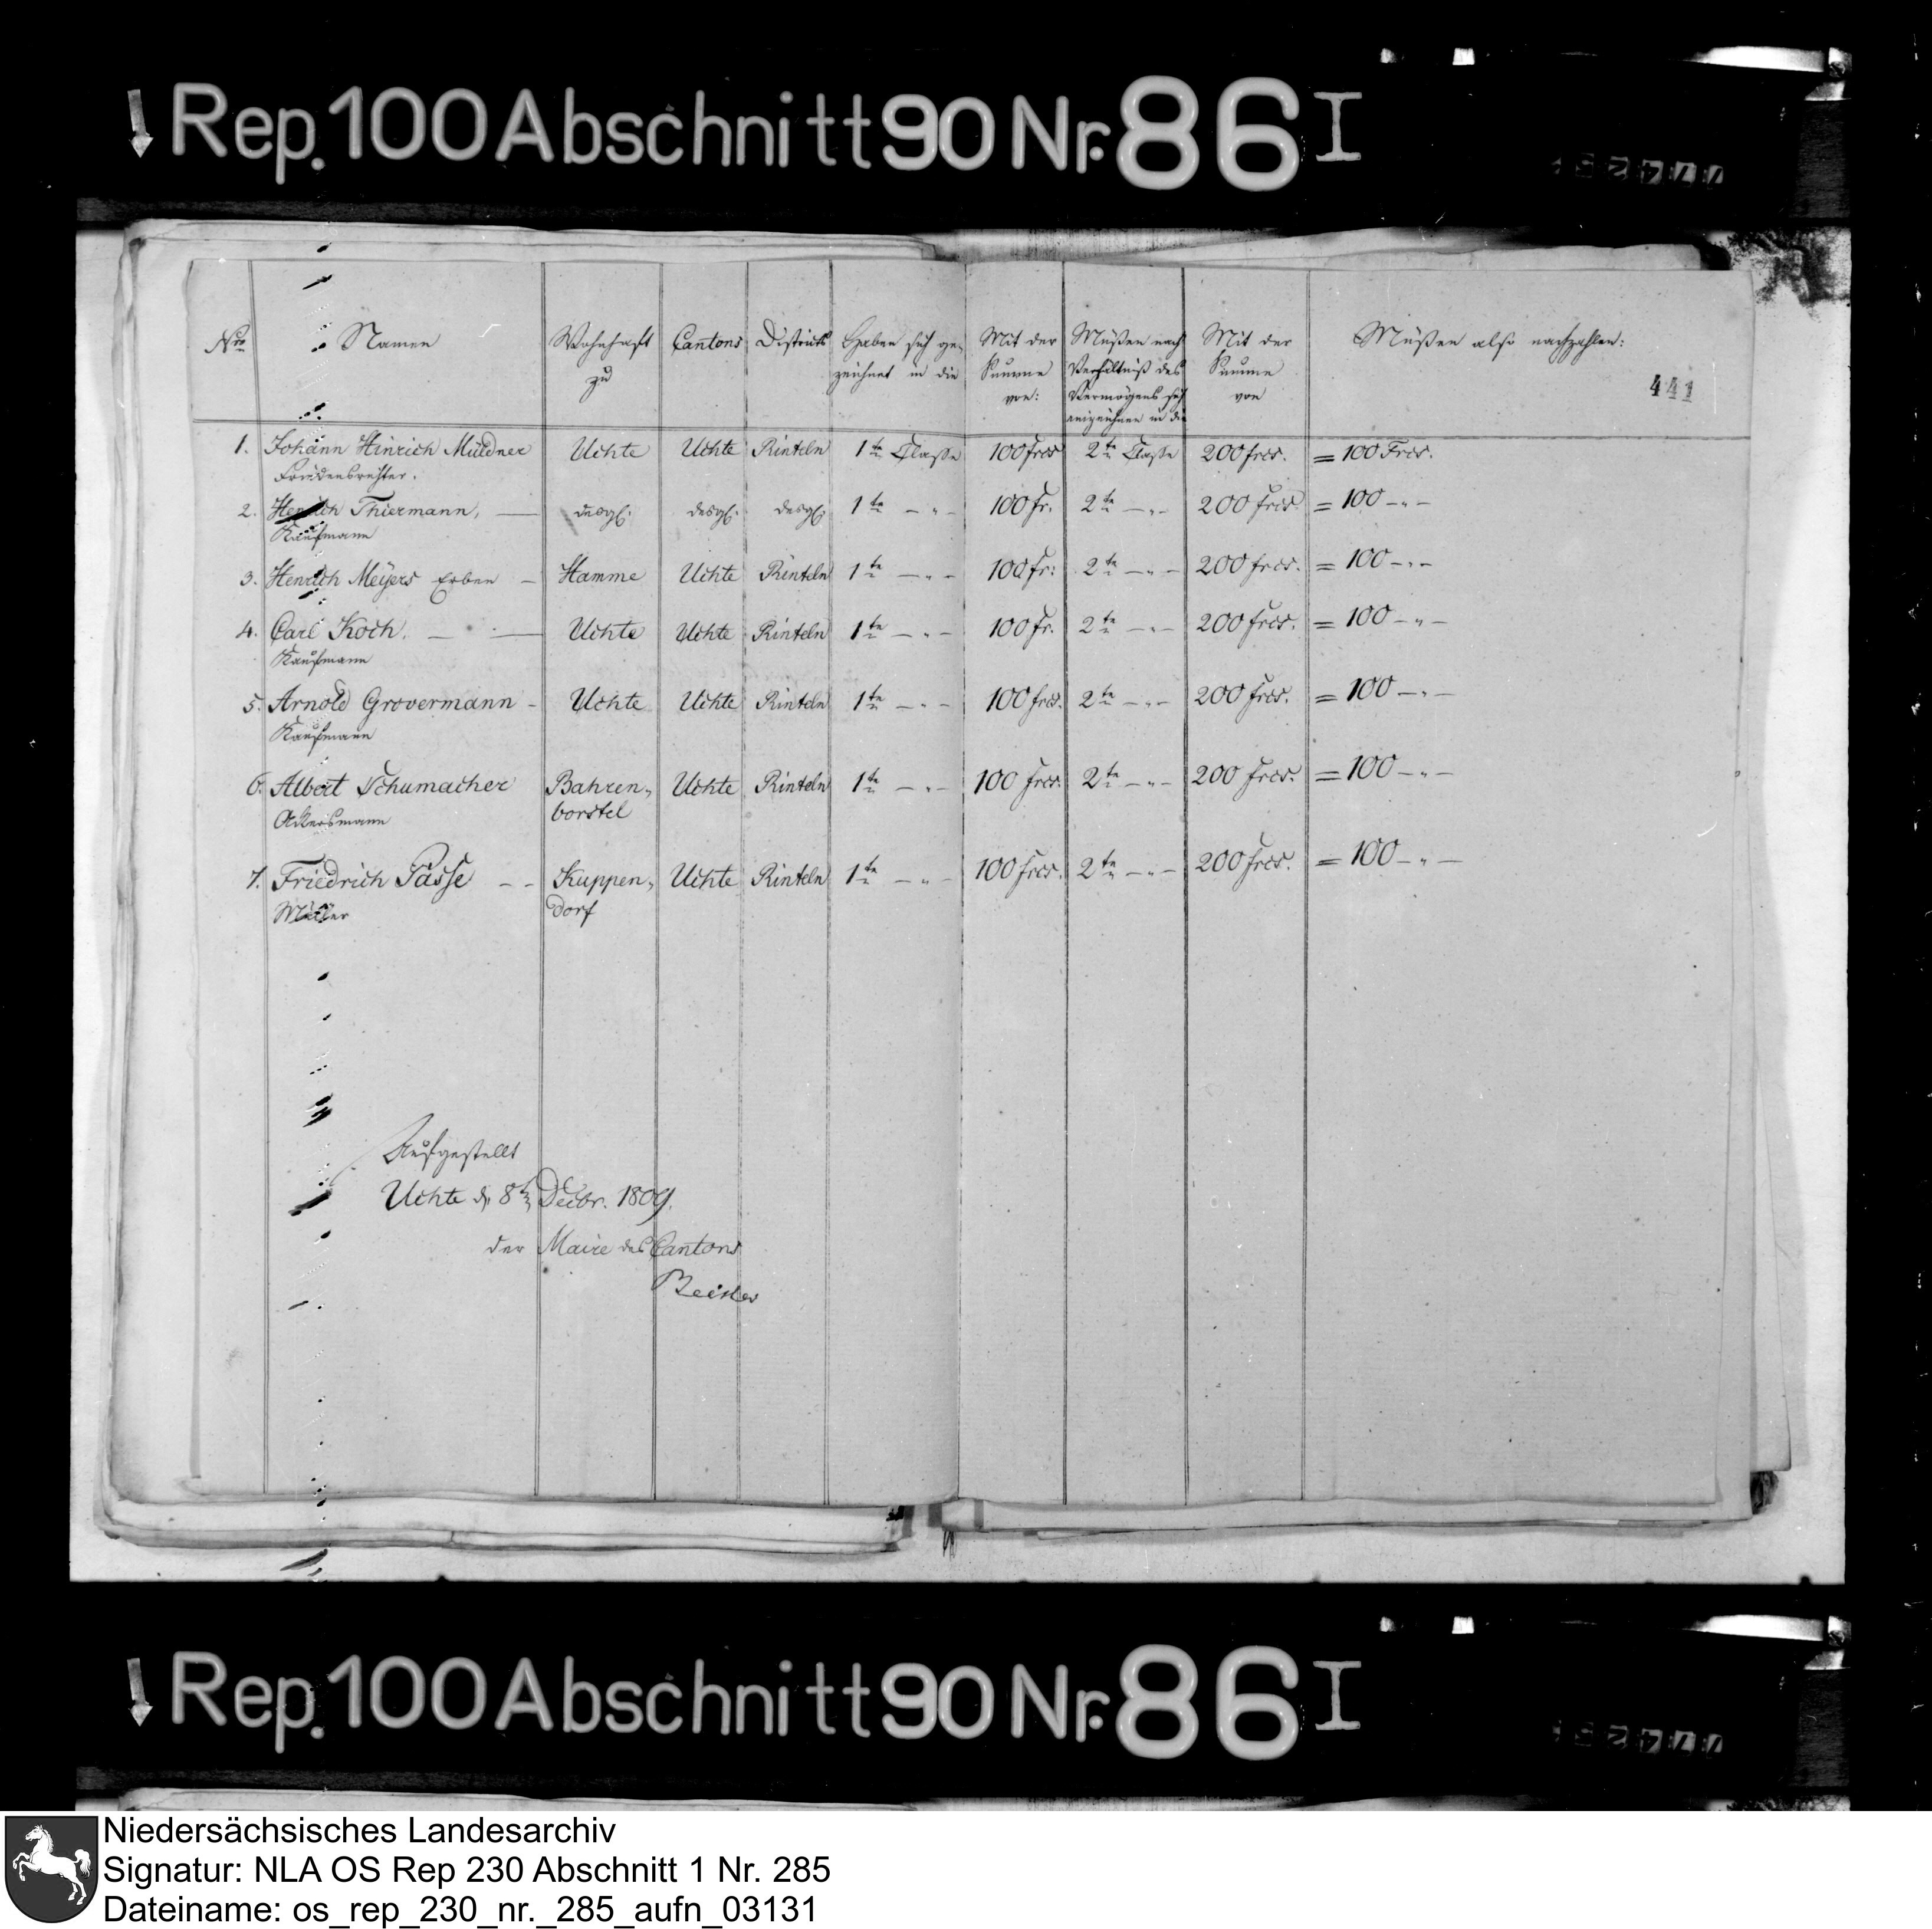 Rep. 100 Abschnitt 90 Nr. 86 I
Nro Namen Wohnhaft zu Cantons Districts Haben sich gezeichnet in die Mit der Summe von: Müßen nach Verhältniß des Vermögens sich anzeichnen in die Mit der Summe von Müßen also nachzahlen:
441
1. Johann Hinrich Müldner Uchte Uchte Rinteln 1te Classe 100 frcs 2te Classe 200 frcs. = 100 Frcs.
Friedensrichter.
2. Henrich Thiermann, — desgl. desgl. desgl. 1te — " — 100 fr. 2te — " — 200 frcs = 100 — " —
Kaufmann
3. Henrich Meyers Erben — Hamme Uchte Rinteln 1te — " — 100 fr: 2te — " — 200 frcs. = 100 — " —
4. Carl Koch. — — Uchte Uchte Rinteln 1te — " — 100 fr. 2te — " — 200 frcs. = 100 — " —
Kaufmann
5. Arnold Grovermann — Uchte Uchte Rinteln 1te — " — 100 frcs. 2te — " — 200 frcs. = 100 — " —
Kaufmann
6. Albert Schumacher Bahren- Uchte Rinteln 1te — " — 100 frcs. 2te — " — 200 frcs. = 100 — " —
Ackersmann borstel
7. Friedrich Passe — — Kuppen- Uchte Rinteln 1te — " — 100 frcs. 2te — " — 200 frcs. = 100 — " —
Müller dorf
Aufgestellt
Uchte d. 8t Decbr. 1809.
der Maire des Cantons
Rep. 100 Abschnitt 90 Nr. 86 I
Niedersächsisches Landesarchiv
Signatur: NLA OS Rep 230 Abschnitt 1 Nr. 285
Dateiname: os_rep_230_nr._285_aufn_03131